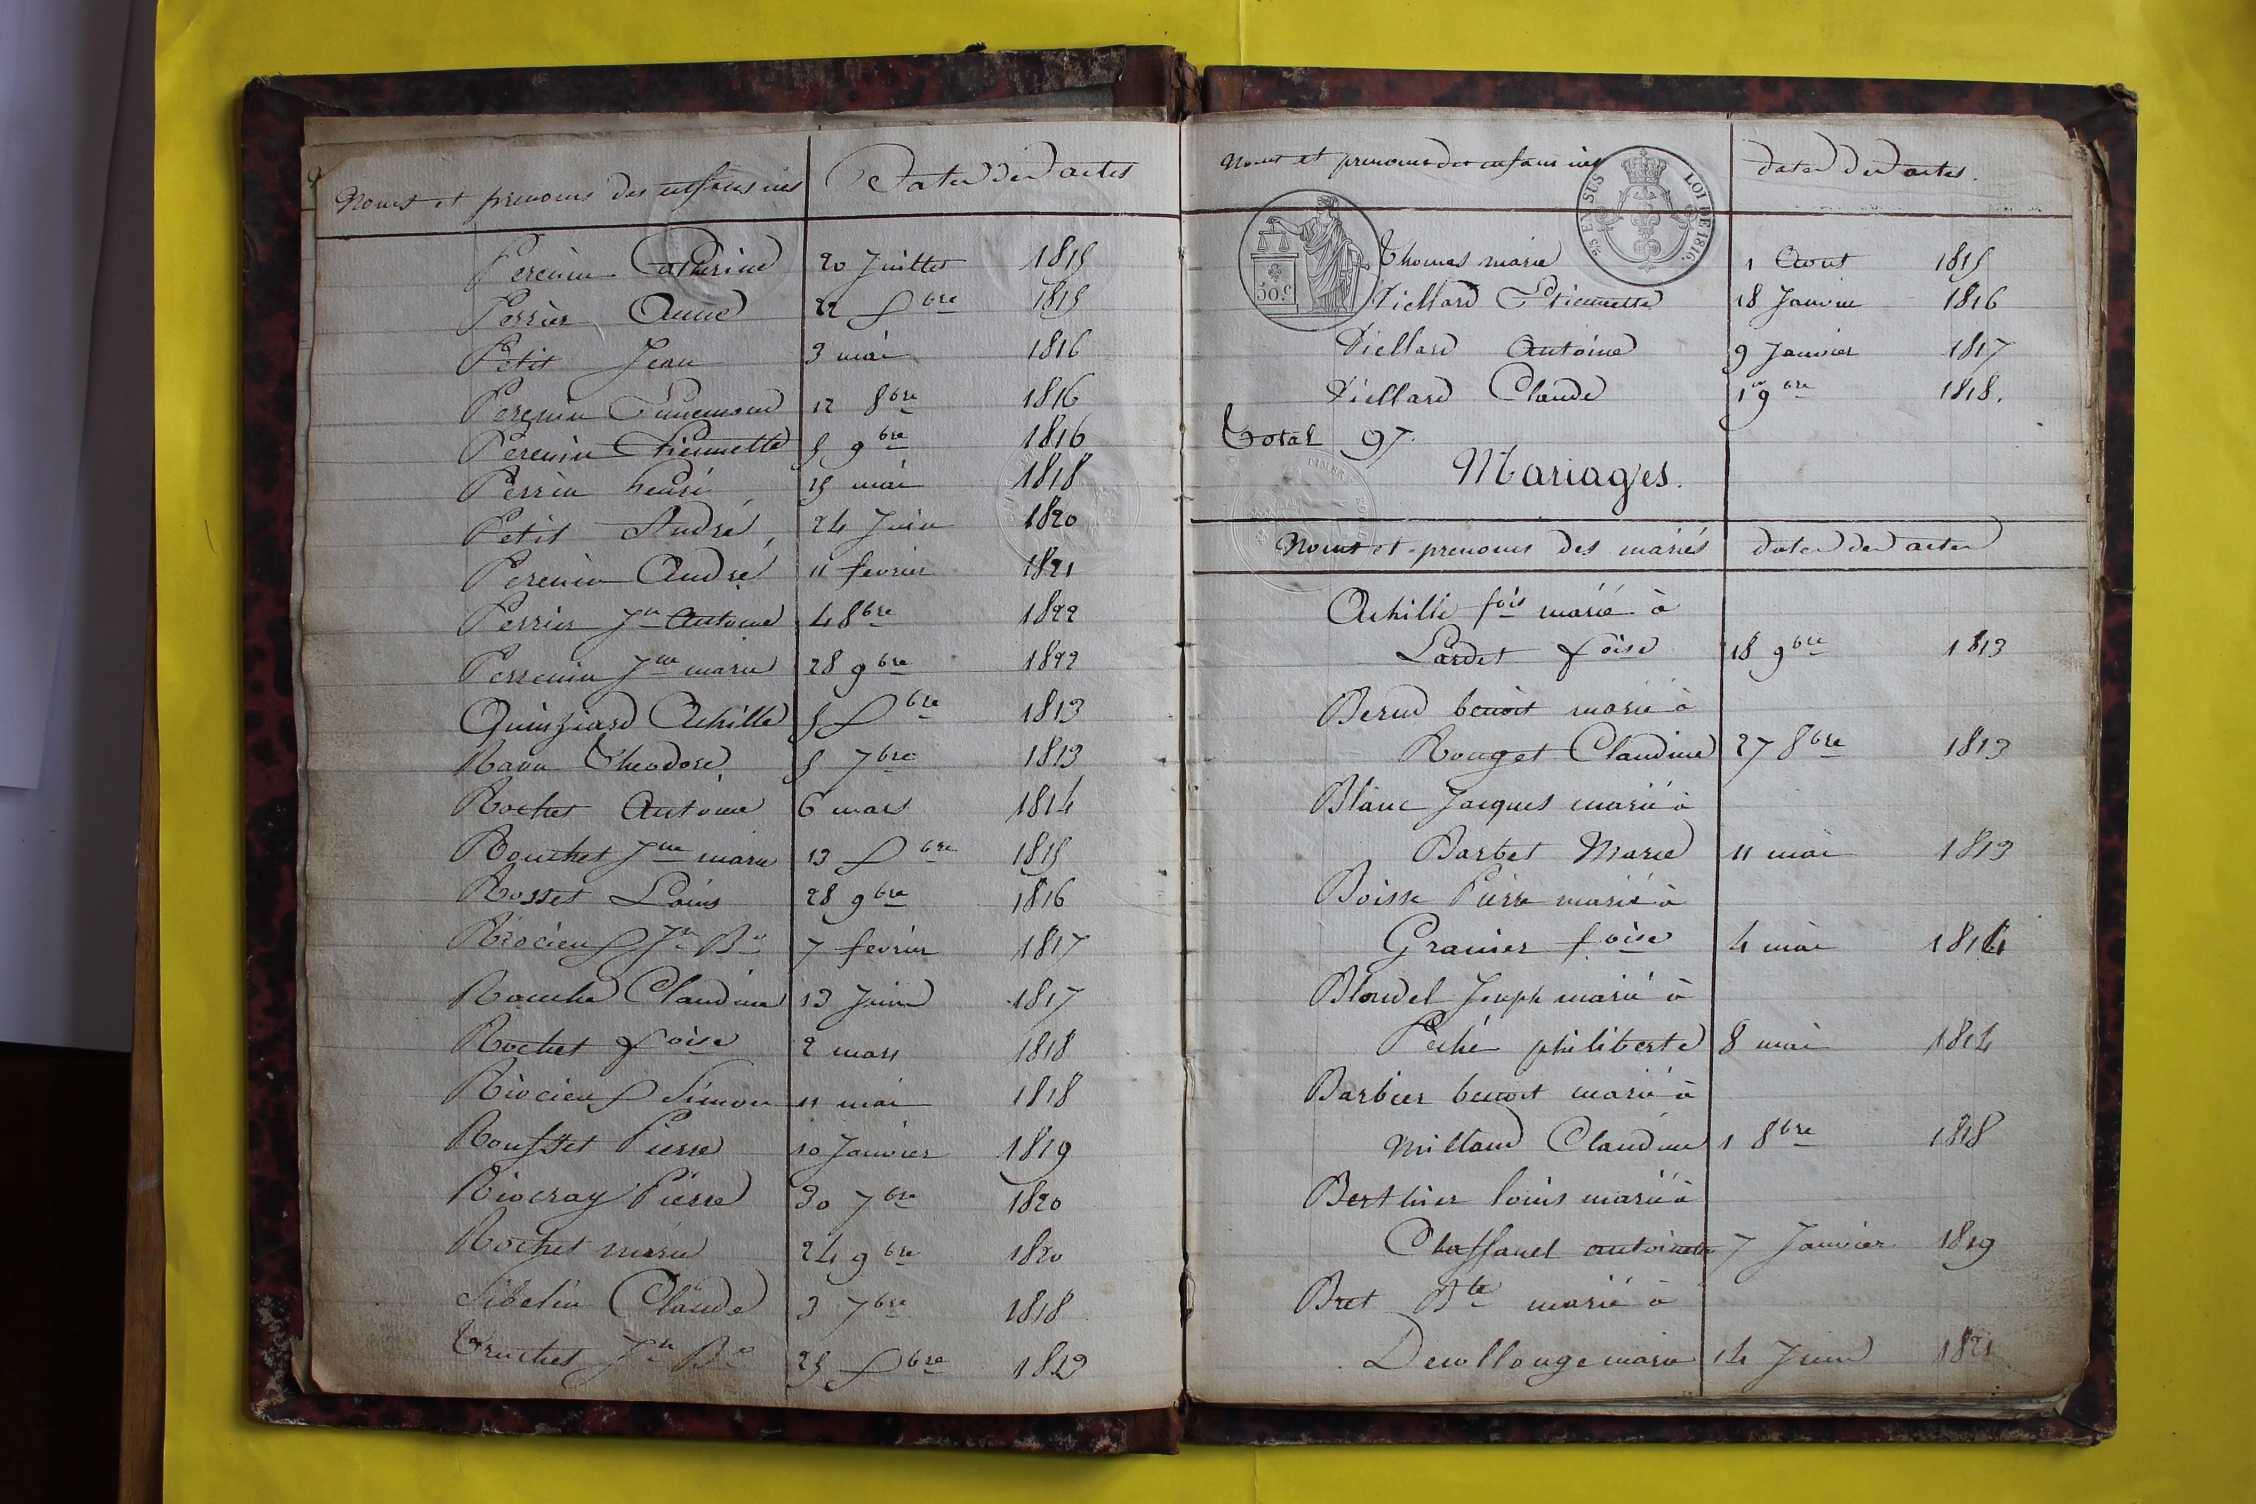 Noms et prenoms des enfans nés Dates des actes
Perenin Catherine 20 Juillet 1815
Perrier Anne 22 Xbre 1815
Petit Jean 3 mai 1816
Perenin 12 8bre 1816
Perenin Etiennette 5 9bre 1816
Perrin henri 15 mai 1818
Petit André 24 Juin 1820
Perenin André 11 fevrier 1821
Perrier Jn Antoine 4 8bre 1822
Perrenin Jne marie 28 9bre 1822
Quinziard Achille 5 Xbre 1813
Ravu Théodore 5 7bre 1813
Rochet Antoine 6 mars 1814
Rouchet Jne marie 13 Xbre 1815
Rosset Louis 28 9bre 1816
Riocieux Jn Bte 7 fevrier 1817
Claudine 13 Juin 1817
Rochet foise 2 mars 1818
Riocieux Simon 11 mai 1818
Rousset Pierre 10 Janvier 1819
Riocray Pierre 30 7bre 1820
Rochet marie 24 9bre 1820
Sibelin Claude 3 7bre 1818
Truchet Jn Bte 25 Xbre
Noms et prenoms des enfans nés dates des actes.
25 EN SUS LOI DE 1816.
50.C
Thomas marie 1 Aout 1815
Viellard Etiennette 18 Janvier 1816
Viellard Antoine 9 Janvier 1817
Viellard Claude 1er 9bre 1818.
Total 97.
Mariages.
Noms et prenoms des mariés dates des actes
Achille fois marié à
Lardet foise 18 9bre 1813
Berud benoit marié à
Rouget Claudine 27 8bre 1813
Blanc Jacques marié à
Barbet Marie 11 mai 1813
Boisse Pierre marié à
Granier foise 4 mai 1814
Blondel Joseph marié à
Péché philiberte 8 mai 1814
Barbier benoit marié à
Milland Claudine 1 8bre 1818
Berthier louis marié à
Chassanel antoinette 7 Janvier 1819
Bret Bte marié à
Decollonge marie 14 Juin 1821